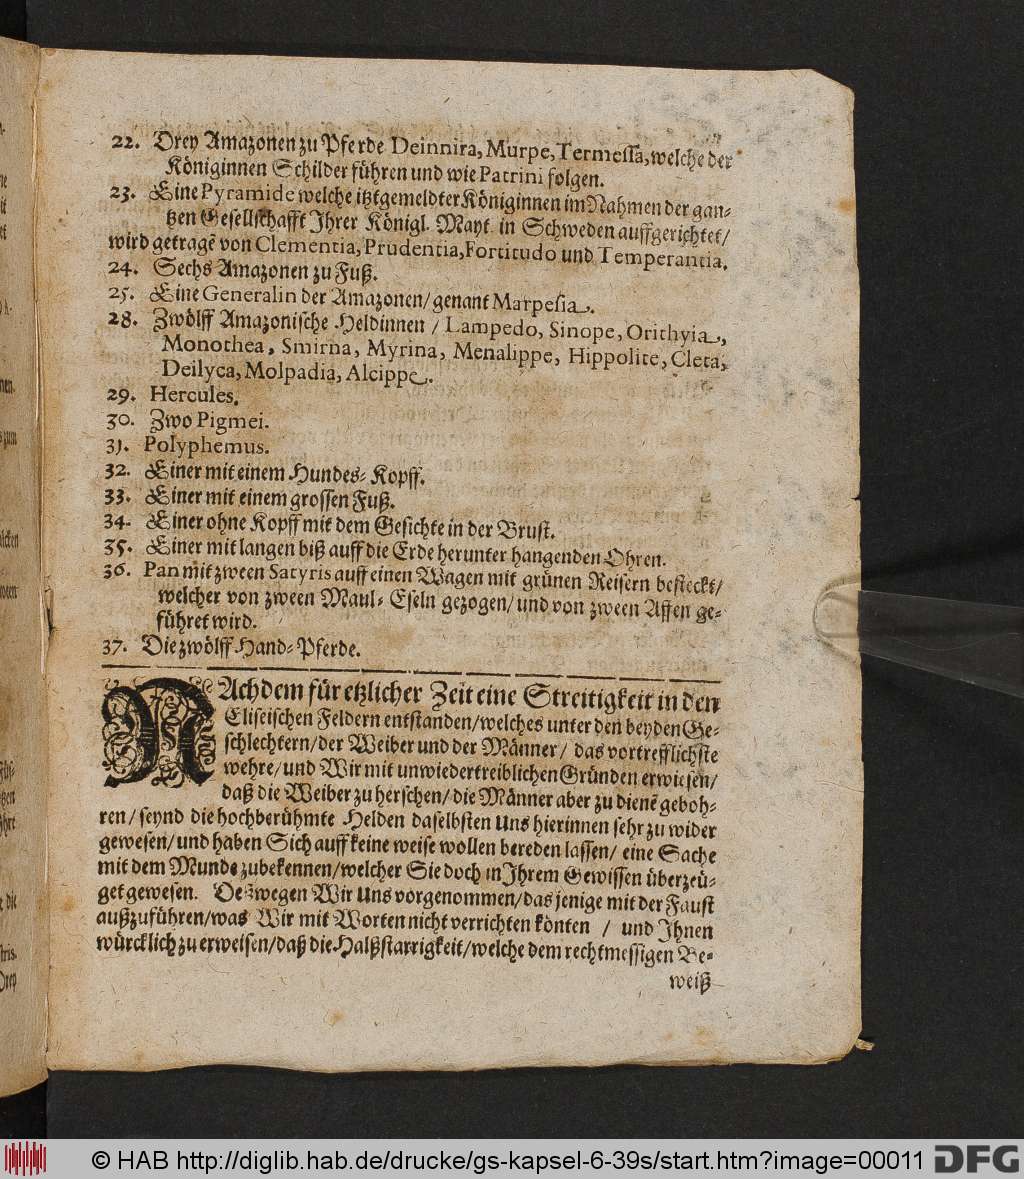 22. Drey Amazonen zu Pferde Deinnira, Murpe, Termessa, welche der
Königinnen Schilder führen und wie Patrini folgen.
23. Eine Pyramide welche itztgemeldter Königinnen im Nahmen der gan-
tzen Gesellschafft Ihrer Königl. Mayt. in Schweden auffgerichtet/
wird getragẽ von Clementia, Prudentia, Fortitudo und Temperantia.
24. Sechs Amazonen zu Fuß.
25. Eine Generalin der Amazonen/ genant Marpesia.
28. Zwölff Amazonische Heldinnen / Lampedo, Sinope, Orithyia,
Monothea, Smirna, Myrina, Menalippe, Hippolite, Cleta,
Deilyca, Molpadia, Alcippe.
29. Hercules.
30. Zwo Pigmei.
31. Polyphemus.
32. Einer mit einem Hundes-Kopff.
33. Einer mit einem grossen Fuß.
34. Einer ohne Kopff mit dem Gesichte in der Brust.
35. Einer mit langen biß auff die Erde herunter hangenden Ohren.
36. Pan mit zween Satyris auff einen Wagen mit grünen Reisern besteckt/
welcher von zween Maul-Eseln gezogen/ und von zween Affen ge-
führet wird.
37. Die zwölff Hand-Pferde.
NAchdem für etzlicher Zeit eine Streitigkeit in den
Eliseischen Feldern entstanden/ welches unter den beyden Ge-
schlechtern/ der Weiber und der Männer/ das vortrefflichste
wehre/ und Wir mit unwiedertreiblichen Gründen erwiesen/
daß die Weiber zu herschen/ die Männer aber zu dienẽ geboh-
ren/ seynd die hochberühmte Helden daselbsten Uns hierinnen sehr zu wider
gewesen/ und haben Sich auff keine weise wollen bereden lassen/ eine Sache
mit dem Munde zubekennen/ welcher Sie doch in Ihrem Gewissen überzeü-
get gewesen. Deßwegen Wir Uns vorgenommen/ das jenige mit der Faust
außzuführen/ was Wir mit Worten nicht verrichten könten / und Ihnen
würcklich zu erweisen/ daß die Halßstarrigkeit/ welche dem rechtmessigen Be-
weiß
© HAB http://diglib.hab.de/drucke/gs-kapsel-6-39s/start.htm?image=00011 DFG